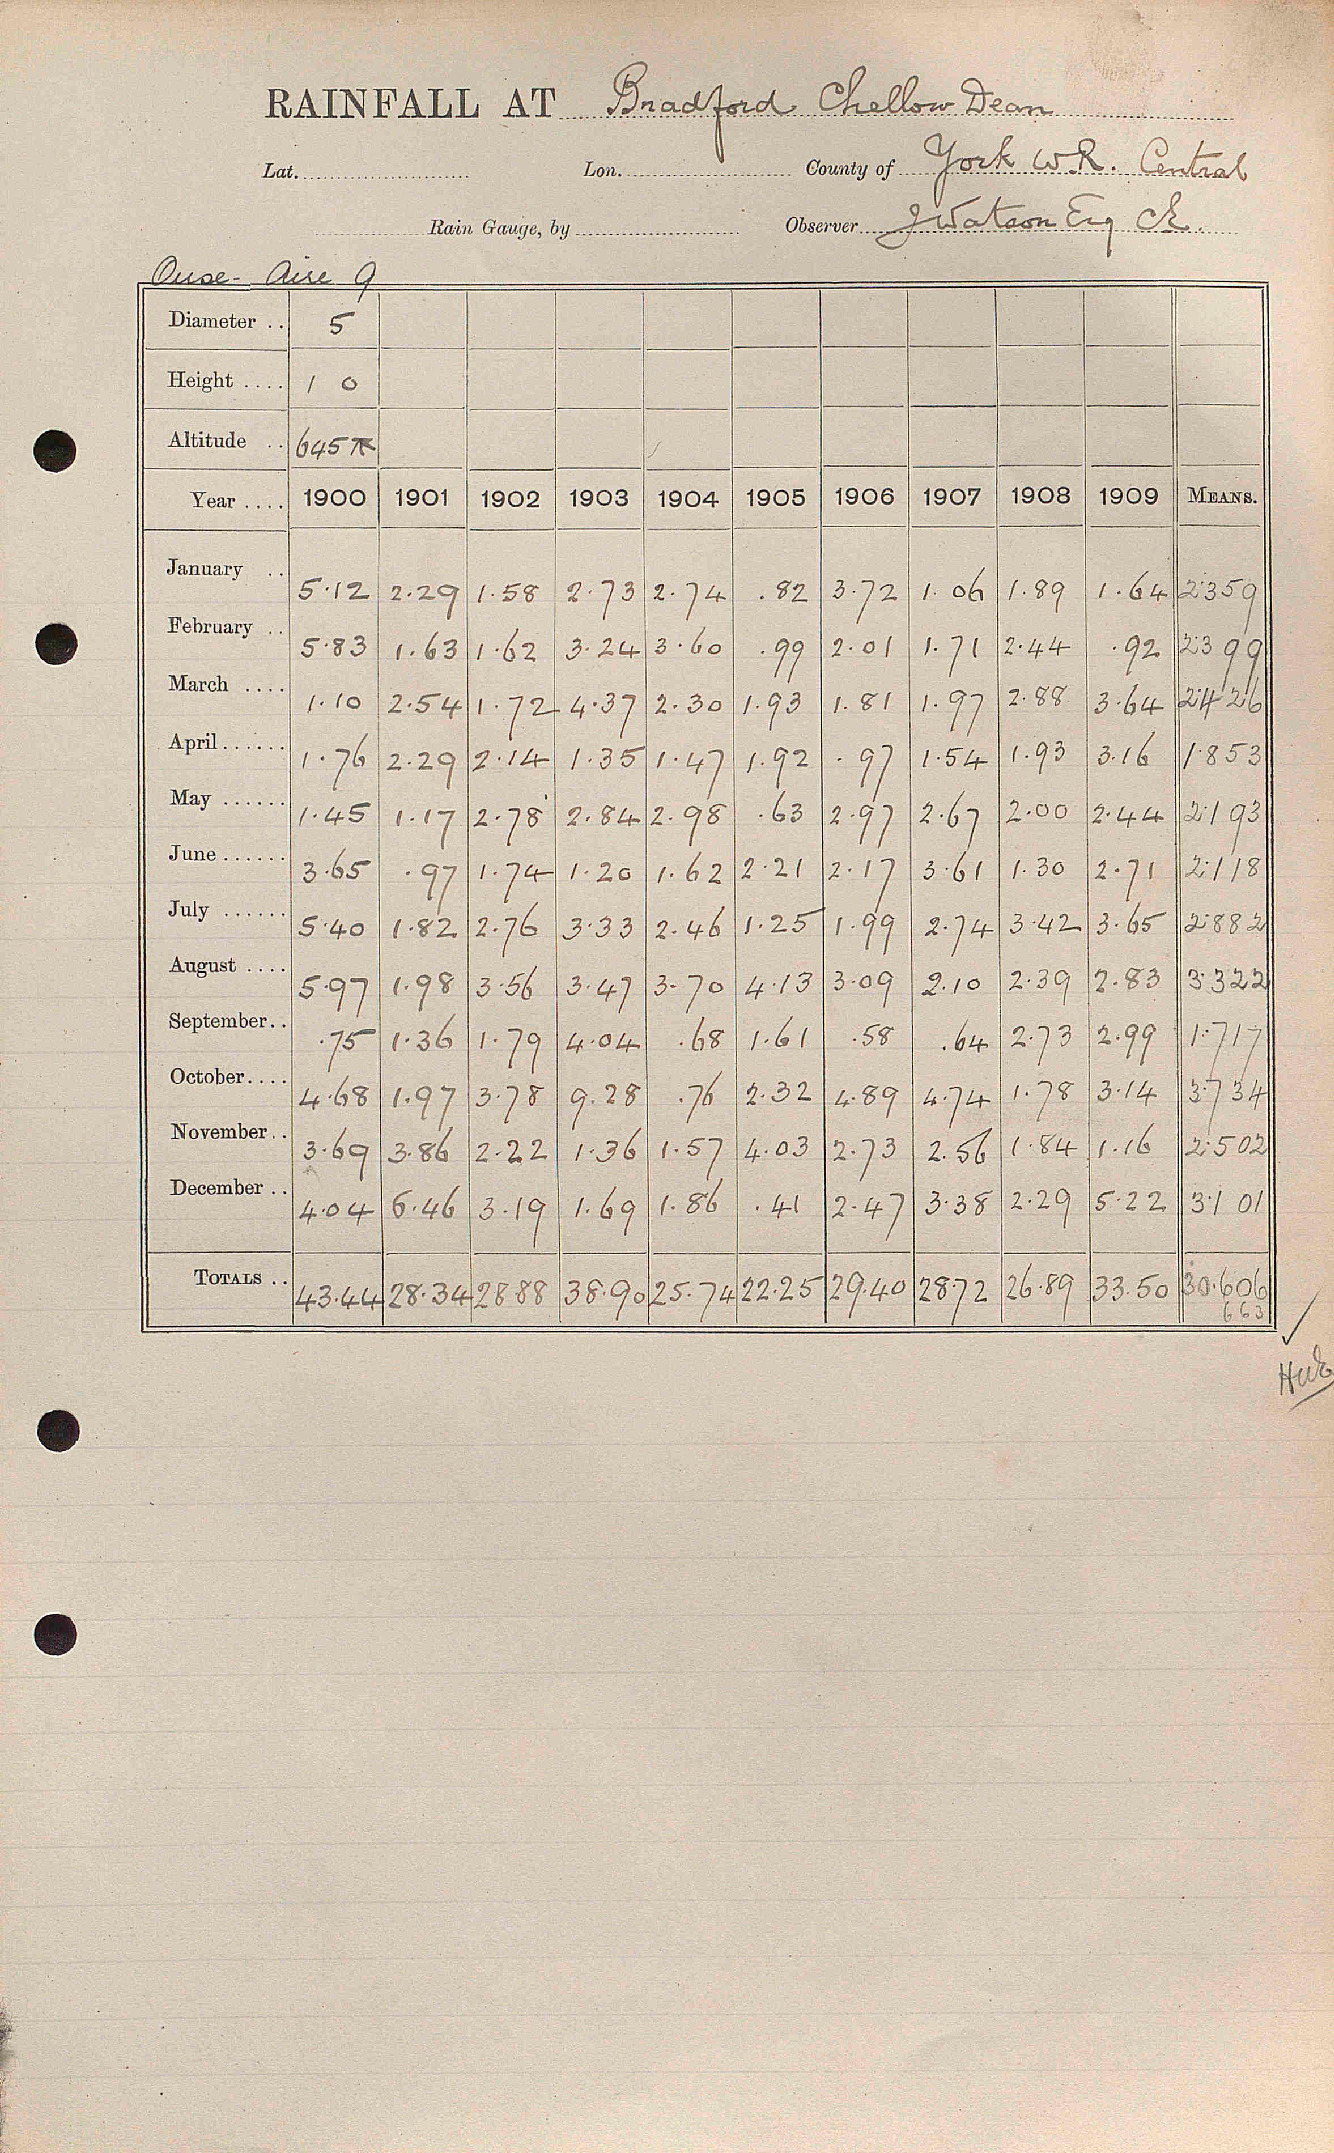 RAINFALL AT Bradford Chellow Dean
Lat. Lon. County of York W.R. Central
Rain Gauge, by Observer J Watson Esq CE.
Ouse - Aire 9
Diameter .. 5
Height .... 1 0
Altitude .. 645
Year .... 1900 1901 1902 1903 1904 1905 1906 1907 1908 1909 MEANS.
January .. 5.12 2.29 1.58 2.73 2.74 .82 3.72 1.06 1.89 1.64 2.359
February .. 5.83 1.63 1.62 3.24 3.60 .99 2.01 1.71 2.44 .92 2399
March .... 1.10 2.54 1.72 4.37 2.30 1.93 1.81 1.97 2.88 3.64 2.426
April ...... 1.76 2.29 2.14 1.35 1.47 1.92 .97 1.54 1.93 3.16 1.853
May ...... 1.45 1.17 2.78 2.84 2.98 .63 2.97 2.67 2.00 2.44 2.193
June ...... 3.65 .97 1.74 1.20 1.62 2.21 2.17 3.61 1.30 2.71 2.118
July ...... 5.40 1.82 2.76 3.33 2.46 1.25 1.99 2.74 3.42 3.65 2.882
August .... 5.97 1.98 3.56 3.47 3.70 4.13 3.09 2.10 2.39 2.83 3.322
September .. .75 1.36 1.79 4.04 .68 1.61 .58 .64 2.73 2.99 1.717
October .... 4.68 1.97 3.78 9.28 .76 2.32 4.89 4.74 1.78 3.14 3.734
November .. 3.69 3.86 2.22 1.36 1.57 4.03 2.73 2.56 1.84 1.16 2.502
December .. 4.04 6.46 3.19 1.69 1.86 .41 2.47 3.38 2.29 5.22 3.101
TOTALS .. 43.44 28.34 28.88 38.90 25.74 22.25 29.40 28.72 26.89 33.50 30.606
663